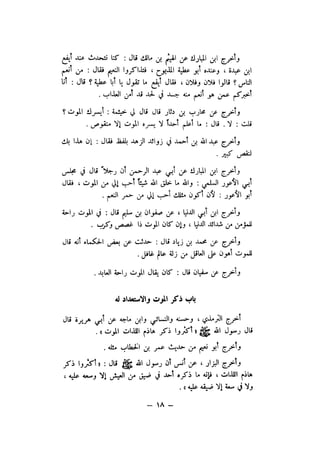 وأخرج ابن المبارك عن الهيثم بن مالك قال : كنا نتحدث عند أيفع
ابن عبدة ، وعنده أبو عطية المذبوح ، فتذاكروا النعيم فقال : من أنعم
الناس ؟ قالوا فلان وفلان ، فقال أيفع ما تقول يا أبا عطية ؟ قال : أنا
أخبركم عمن هو أنعم منه جسد في لحد قد أمن العذاب .
وأخرج عن محارب بن دثار قال قال لي خيثمة : أيسرك الموت ؟
قلت : لا . قال : ما أعلم أحداً لا يسره الموت إلا منقوص .
وأخرج عبد الله بن أحمد في زوائد الزهد بلفظ فقال : إن هذا بك
لنقص كبير .
وأخرج ابن المبارك عن أبي عبد الرحمن أن رجلاً قال في مجلس
أبي الأعور السلمي : والله ما خلق الله شيئاً أحب إلي من الموت ، فقال
أبو الأعور : لأن أكون مثلك أحب إلي من حمر النعم .
وأخرج ابن أبي الدنيا ، عن صفوان بن سليم قال : في الموت راحة
للمؤمن من شدائد الدنيا ، وإن كان الموت ذا غصص وكرب .
وأخرج عن محمد بن زياد قال : حدثت عن بعض الحكماء أنه قال
للموت أهون على العاقل من زلة عالم غافل .
وأخرج عن سفيان قال : كان يقال الموت راحة العابد .
باب ذكر الموت والاستعداد له
أخرج الترمذي ، وحسنه والنسائي وابن ماجه عن أبي هريرة قال
قال رسول الله ﷺ « أكثروا ذكر هاذم اللذات الموت » .
وأخرج أبو نعيم من حديث عمر بن الخطاب مثله .
وأخرج البزار ، عن أنس أن رسول الله ﷺ قال : « أكثروا ذكر
هاذم اللذات ، فإنه ما ذكره أحد في ضيق من العيش إلا وسعه عليه ،
ولا في سعة إلا ضيقه عليه » .
— ١٨ —